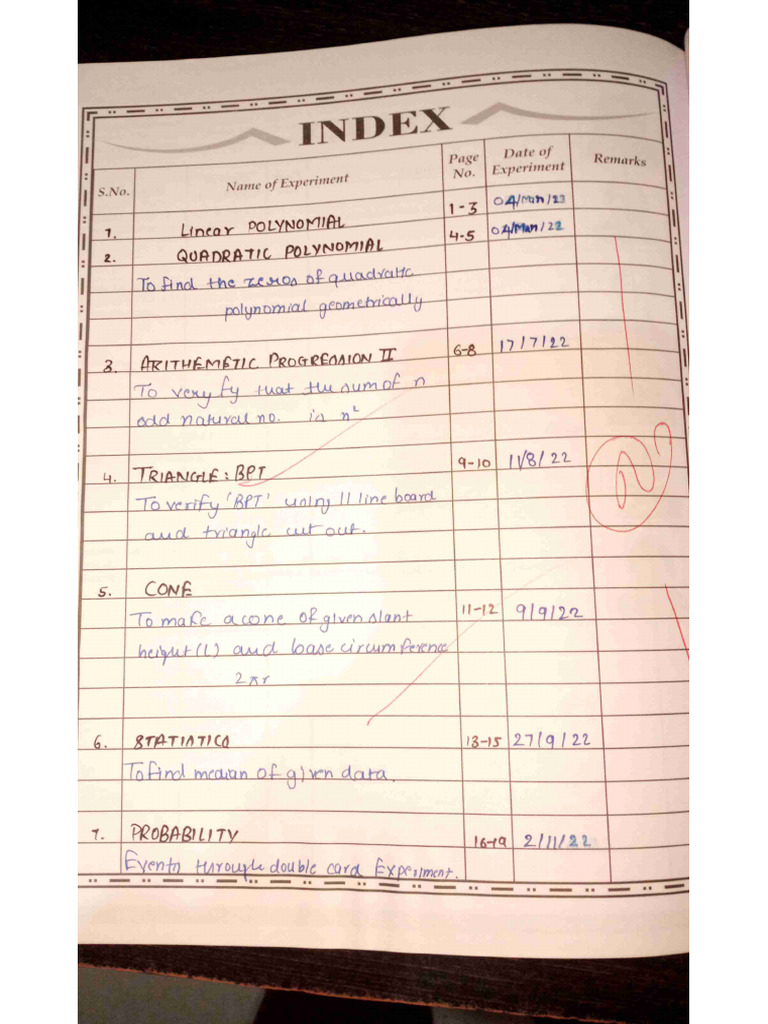 INDEX
S.No. Name of Experiment Page No. Date of Experiment Remarks
1. Linear POLYNOMIAL 1-3
2. QUADRATIC POLYNOMIAL 4-5
To find the zeros of quadratic
polynomial geometrically
3. ARITHEMETIC PROGRESSION II 6-8 17/7/22
To veryfy that the sum of n
odd natural no. is n²
4. TRIANGLE: BPT 9-10 11/8/22
To verify 'BPT' using 11 line board
and triangle cut out.
5. CONE
To make a cone of given slant 11-12 9/9/22
height (l) and base circumference
2πr
6. STATISTICS 13-15 27/9/22
To find median of given data.
7. PROBABILITY 16-19 2/11/22
Events through double card Experiment.